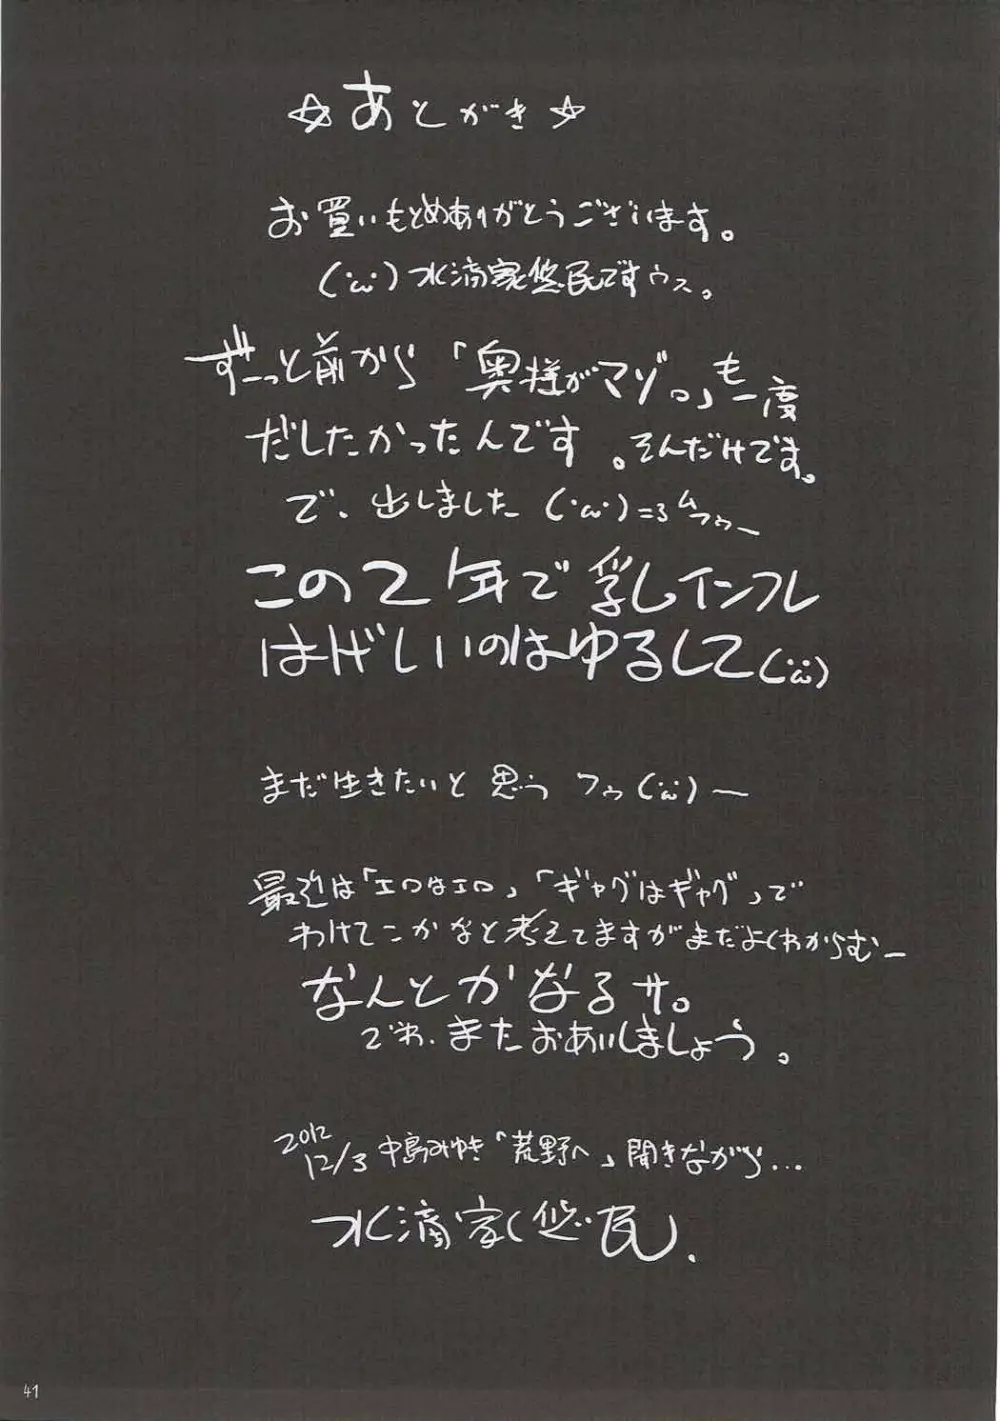 ☆あとがき☆
お買いもとめありがとうございます。
(´ω`)水滴家悠民ですウス。
ずーっと前から「奥様がマゾ。」も一度
だしたかったんです。そんだけです。
で、出しました(´・ω・)=3ムフゥー
この2年で乳しインフレ
はげしいのはゆるして(´ω`)
まだ生きたいと思う フゥ(´ω`)ー
最近は「エロはエロ」「ギャグはギャグ」で
わけてこかなと考えてますがまだよくわからむー
なんとかなるサ。
でわ、またおあいしましょう。
2012
12/3 中島みゆき「荒野へ」聞きながら…
水滴家悠民.
41